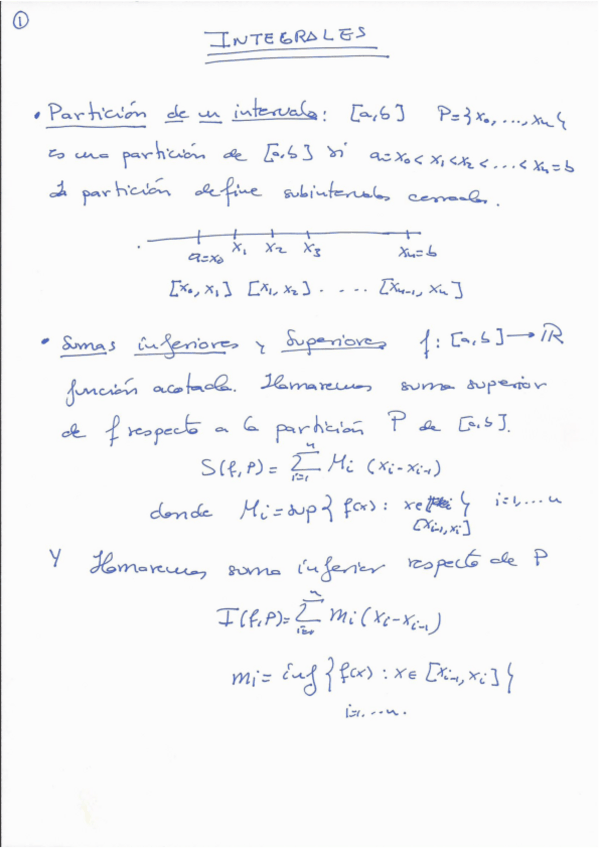 ①
INTEGRALES
• Partición de un intervalo: [a,b] P={x₀,...,xₙ}
es una partición de [a,b] si a=x₀<x₁<x₂<...<xₙ=b
partición define subintervalos cerrados.
a=x₀ x₁ x₂ x₃ xₙ=b
[x₀,x₁] [x₁,x₂] .... [xₙ₋₁,xₙ]
• Sumas inferiores y Superiores f: [a,b]→ℝ
función acotada. Llamaremos suma superior
de f respecto a la partición P de [a,b].
S(f,P)= ∑ᵢ₌₁ⁿ Mᵢ (xᵢ-xᵢ₋₁)
donde Mᵢ=sup{f(x): x∈ } i=1,...n
[xᵢ₋₁,xᵢ]
Y llamaremos suma inferior respecto de P
I(f,P)= ∑ⁿ mᵢ(xᵢ-xᵢ₋₁)
mᵢ= inf {f(x): x∈ [xᵢ₋₁,xᵢ]}
i=1,...n.